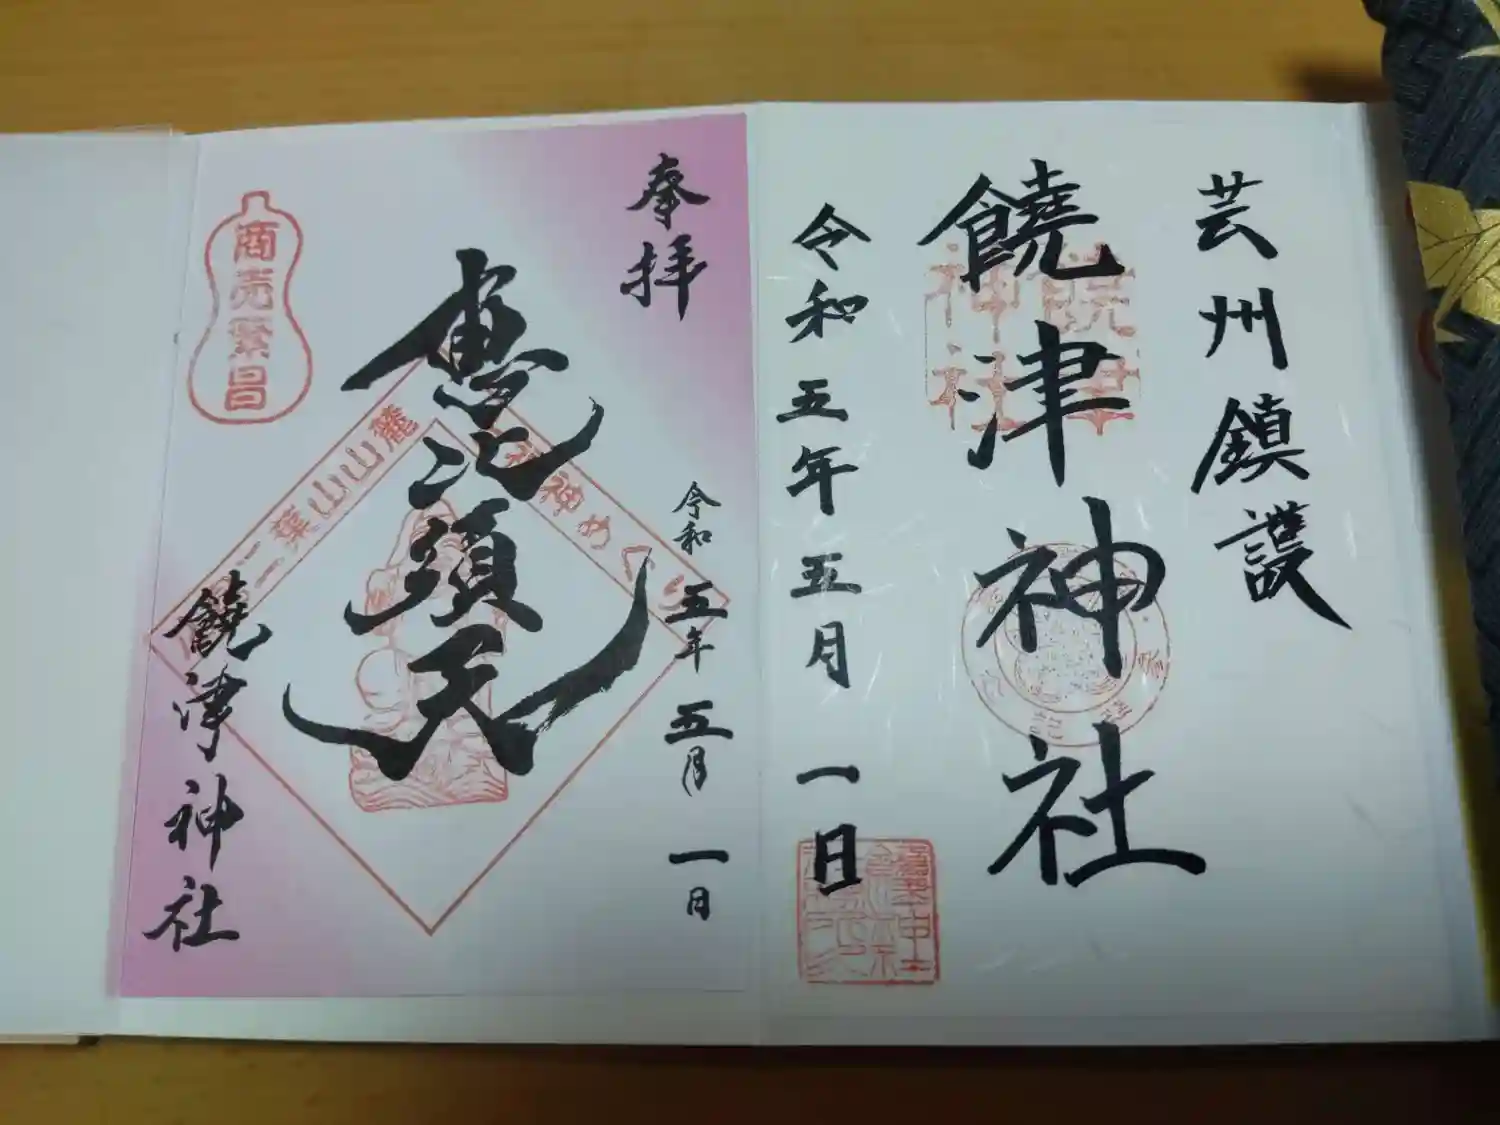 芸州鎮護
饒津神社
令和五年五月一日
奉拝
令和五年五月一日
恵比須天
商売繁昌
二葉山山麓
神めぐり
饒津神社